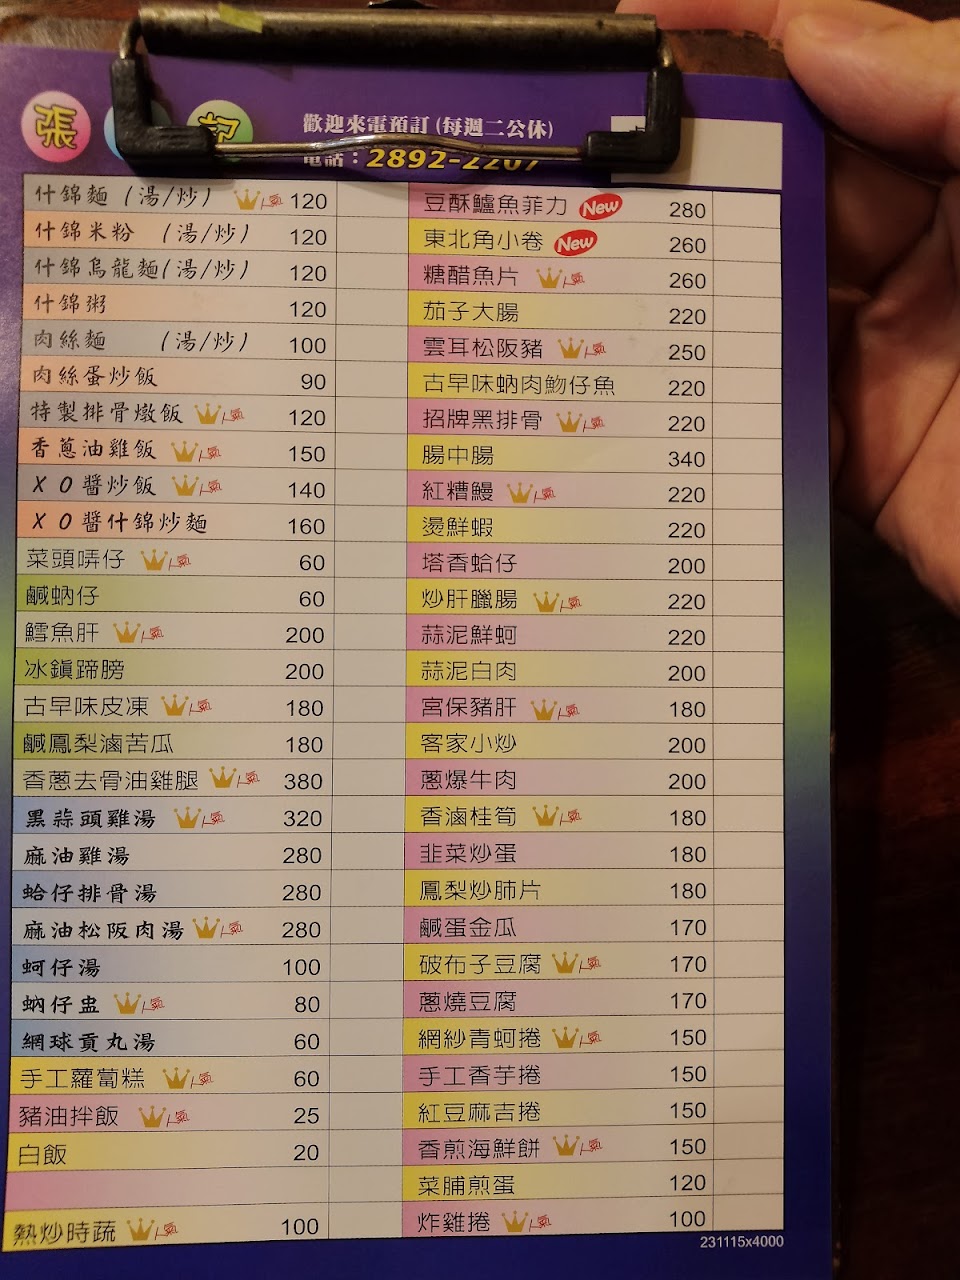 張 記
歡迎來電預訂 (每週二公休)
電話：2892-2207
什錦麵 (湯/炒) 人氣 120
什錦米粉 (湯/炒) 120
什錦烏龍麵(湯/炒) 120
什錦粥 120
肉絲麵 (湯/炒) 100
肉絲蛋炒飯 90
特製排骨燉飯 人氣 120
香蔥油雞飯 人氣 150
XO醬炒飯 人氣 140
XO醬什錦炒麵 160
菜頭哢仔 人氣 60
鹹蚋仔 60
鱈魚肝 人氣 200
冰鎮蹄膀 200
古早味皮凍 人氣 180
鹹鳳梨滷苦瓜 180
香蔥去骨油雞腿 人氣 380
黑蒜頭雞湯 人氣 320
麻油雞湯 280
蛤仔排骨湯 280
麻油松阪肉湯 人氣 280
蚵仔湯 100
蚋仔盅 人氣 80
網球貢丸湯 60
手工蘿蔔糕 人氣 60
豬油拌飯 人氣 25
白飯 20
熱炒時蔬 人氣 100
豆酥鱸魚菲力 New 280
東北角小卷 New 260
糖醋魚片 人氣 260
茄子大腸 220
雲耳松阪豬 人氣 250
古早味蚋肉魩仔魚 220
招牌黑排骨 人氣 220
腸中腸 340
紅糟鰻 人氣 220
燙鮮蝦 220
塔香蛤仔 200
炒肝臘腸 人氣 220
蒜泥鮮蚵 220
蒜泥白肉 200
宮保豬肝 人氣 180
客家小炒 200
蔥爆牛肉 200
香滷桂筍 人氣 180
韭菜炒蛋 180
鳳梨炒肺片 180
鹹蛋金瓜 170
破布子豆腐 人氣 170
蔥燒豆腐 170
網紗青蚵捲 人氣 150
手工香芋捲 150
紅豆麻吉捲 150
香煎海鮮餅 人氣 150
菜脯煎蛋 120
炸雞捲 人氣 100
231115x4000